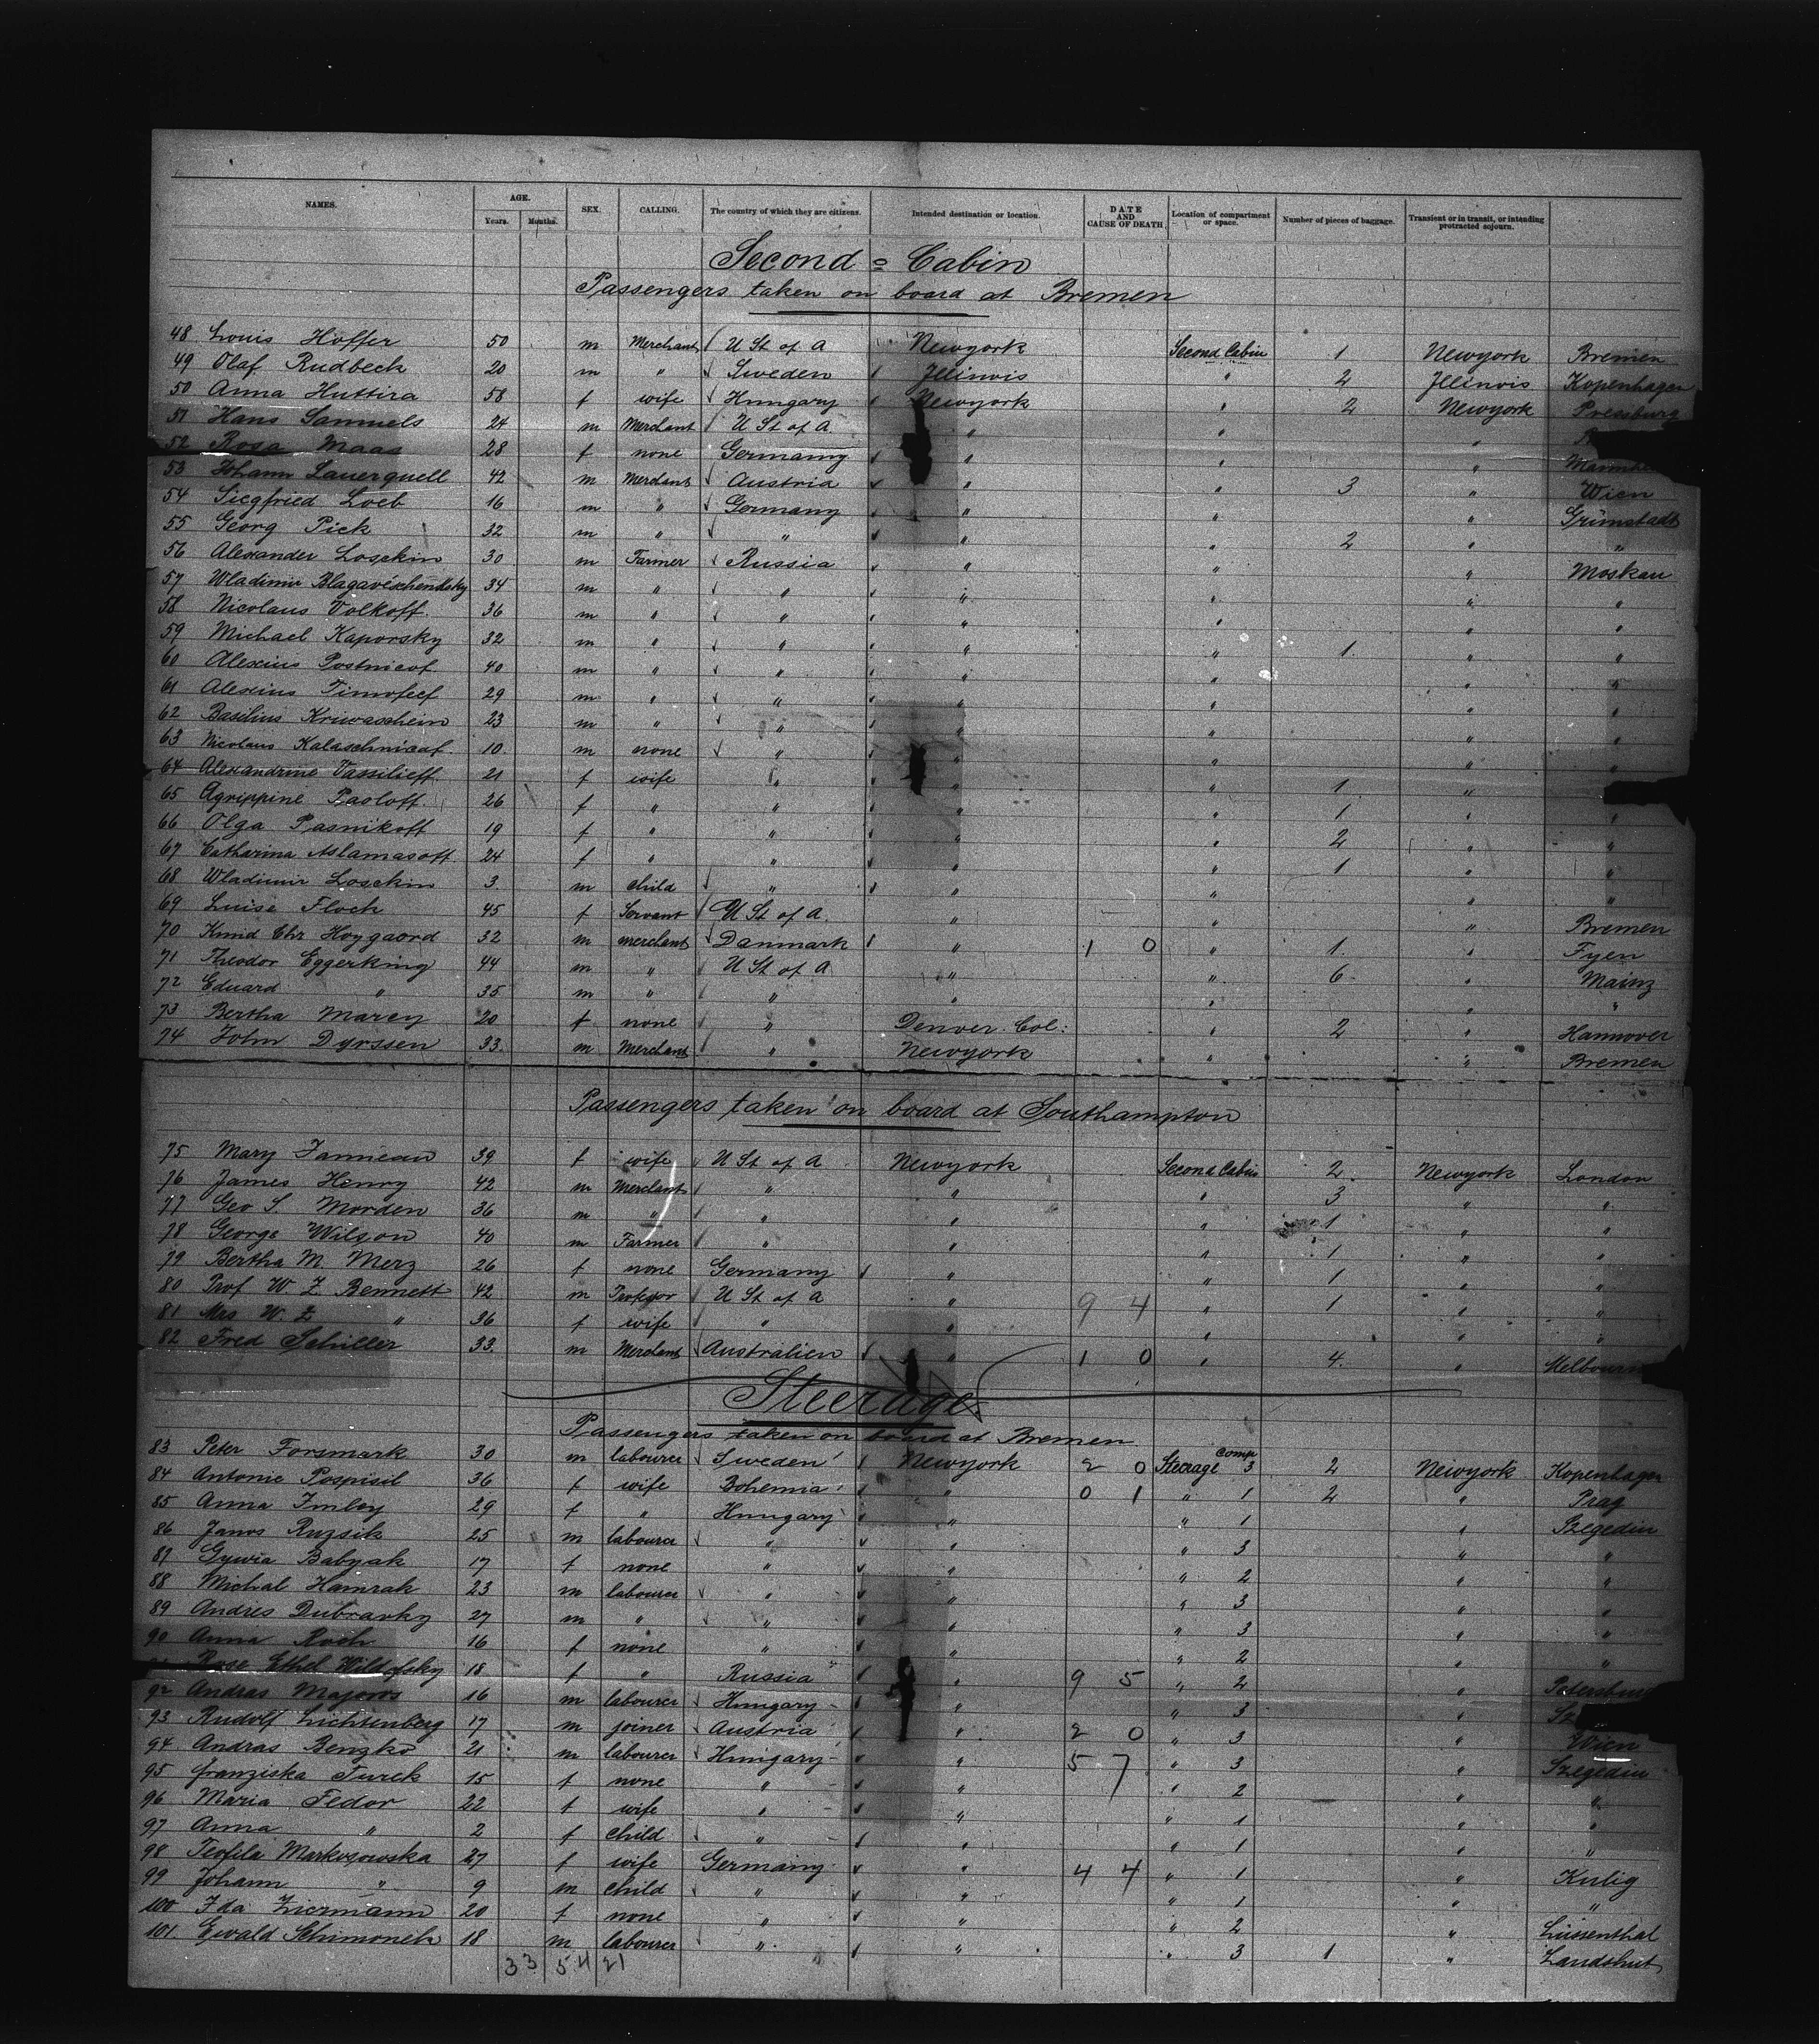 NAMES. AGE. Years. Months. SEX. CALLING. The country of which they are citizens. Intended destination or location. DATE AND CAUSE OF DEATH Location of compartment or space. Number of pieces of baggage. Transient or in transit, or intending protracted sojourn.
Second = Cabin
Passengers taken on board at Bremen
48 Louis Hoffer 50 m Merchant U St of A Newyork Second Cabin 1 Newyork Bremen
49 Olaf Rudbeck 20 m " Sweden Illinois " 2 Illinois Kopenhagen
50 Anna Huttira 58 f wife Hungary Newyork " 2 Newyork Pressburg
51 Hans Sammels 24 m Merchant U St of A " " "
52 Rosa Maas 28 f none Germany " " "
53 Johann Lauerquell 42 m Merchant Austria " " 3 " Wien
54 Siegfried Loeb 16 m " Germany " " " Grünstadt
55 Georg Pick 32 m " " " " 2 " "
56 Alexander Losckin 30 m Farmer Russia " " " Moskau
57 Wladimir Blagavéschendsky 34 m " " " " " "
58 Nicolaus Volkoff 36 m " " " " " "
59 Michael Kaporsky 32 m " " " " 1 " "
60 Alexius Postnicof 40 m " " " " " "
61 Alexius Timofeef 29 m " " " " " "
62 Basilius Kriwaschein 23 m " " " " " "
63 Nicolaus Kalaschnicof 10 m none " " " " "
64 Alexandrine Vassilieff 21 f wife " " " 1 "
65 Agrippine Paoloff 26 f " " " " 1 " "
66 Olga Pasnikoff 19 f " " " " 2 " "
67 Catharina Aslamasoff 24 f " " " " 1 " "
68 Wladimir Losckin 3 m child " " " " "
69 Luise Flock 45 f Servant U St of A " " " Bremen
70 Knud Chr Hoygaord 32 m merchant Danmark " 1 0 " 1 " Fyen
71 Theodor Eggerking 44 m " U St of A " " 6 " Mainz
72 Eduard " 35 m " " " " " "
73 Bertha Marcy 20 f none " Denver Col: " 2 " Hannover
74 John Dyrssen 33 m Merchant " Newyork " " Bremen
Passengers taken on board at Southampton
75 Mary 39 f wife U St of A Newyork Second Cabin 2 Newyork London
76 James Henry 42 m Merchant " " " 3 " "
77 Geo S Morden 36 m " " " " 1 " "
78 George Wilson 40 m Farmer " " " 1 " "
79 Bertha M. Merz 26 f none Germany " " 1 " "
80 Prof W. Z Bennett 42 m Professor U St of A " 9 4 " 1 " "
81 Mrs W. Z " 36 f wife " " " " "
82 Fred Schiller 33 m Merchant Australien " 1 0 " 4 " Melbourne
Steerage
Passengers taken on board at Bremen
83 Peter Forsmark 30 m labourer Sweden Newyork 2 0 Steerage Comp 3 2 Newyork Kopenhagen
84 Antonie Pospisil 36 f wife Bohemia " 0 1 " 1 2 " Prag
85 Anna Imley 29 f " Hungary " " 1 " Szegedin
86 Janos Ruzsik 25 m labourer " " " 3 " "
87 Gywia Babyak 17 f none " " " 2 " "
88 Michal Hamrak 23 m labourer " " " 3 " "
89 Andres Dubravky 27 m " " " " 3 " "
90 Anna Roch 16 f none " " " 2 " "
Rose Ethel Wildofsky 18 f " Russia " 9 5 " 2 "
92 Andras Majoros 16 m labourer Hungary " " 3 "
93 Rudolf Lichtenberg 17 m joiner Austria " 2 0 " 3 " Wien
94 Andras Benzko 21 m labourer Hungary " 5 7 " 3 " Szegedin
95 Franziska Turek 15 f none " " " 2 " "
96 Maria Fedor 22 f wife " " " 1 " "
97 Anna " 2 f child " " " 1 " "
98 Teofila Markosowska 27 f wife Germany " 4 4 " 1 " Kulig
99 Johann " 9 m child " " " 1 " "
100 Ida Ziermann 20 f none " " " 2 " Lüssenthal
101 Ewald Schimonek 18 m labourer " " " 3 1 " Landshut
33 54 21